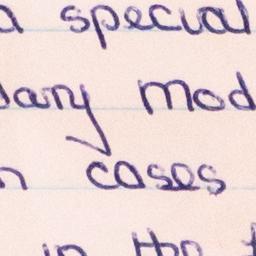 a special
dary mod
n cases
in the